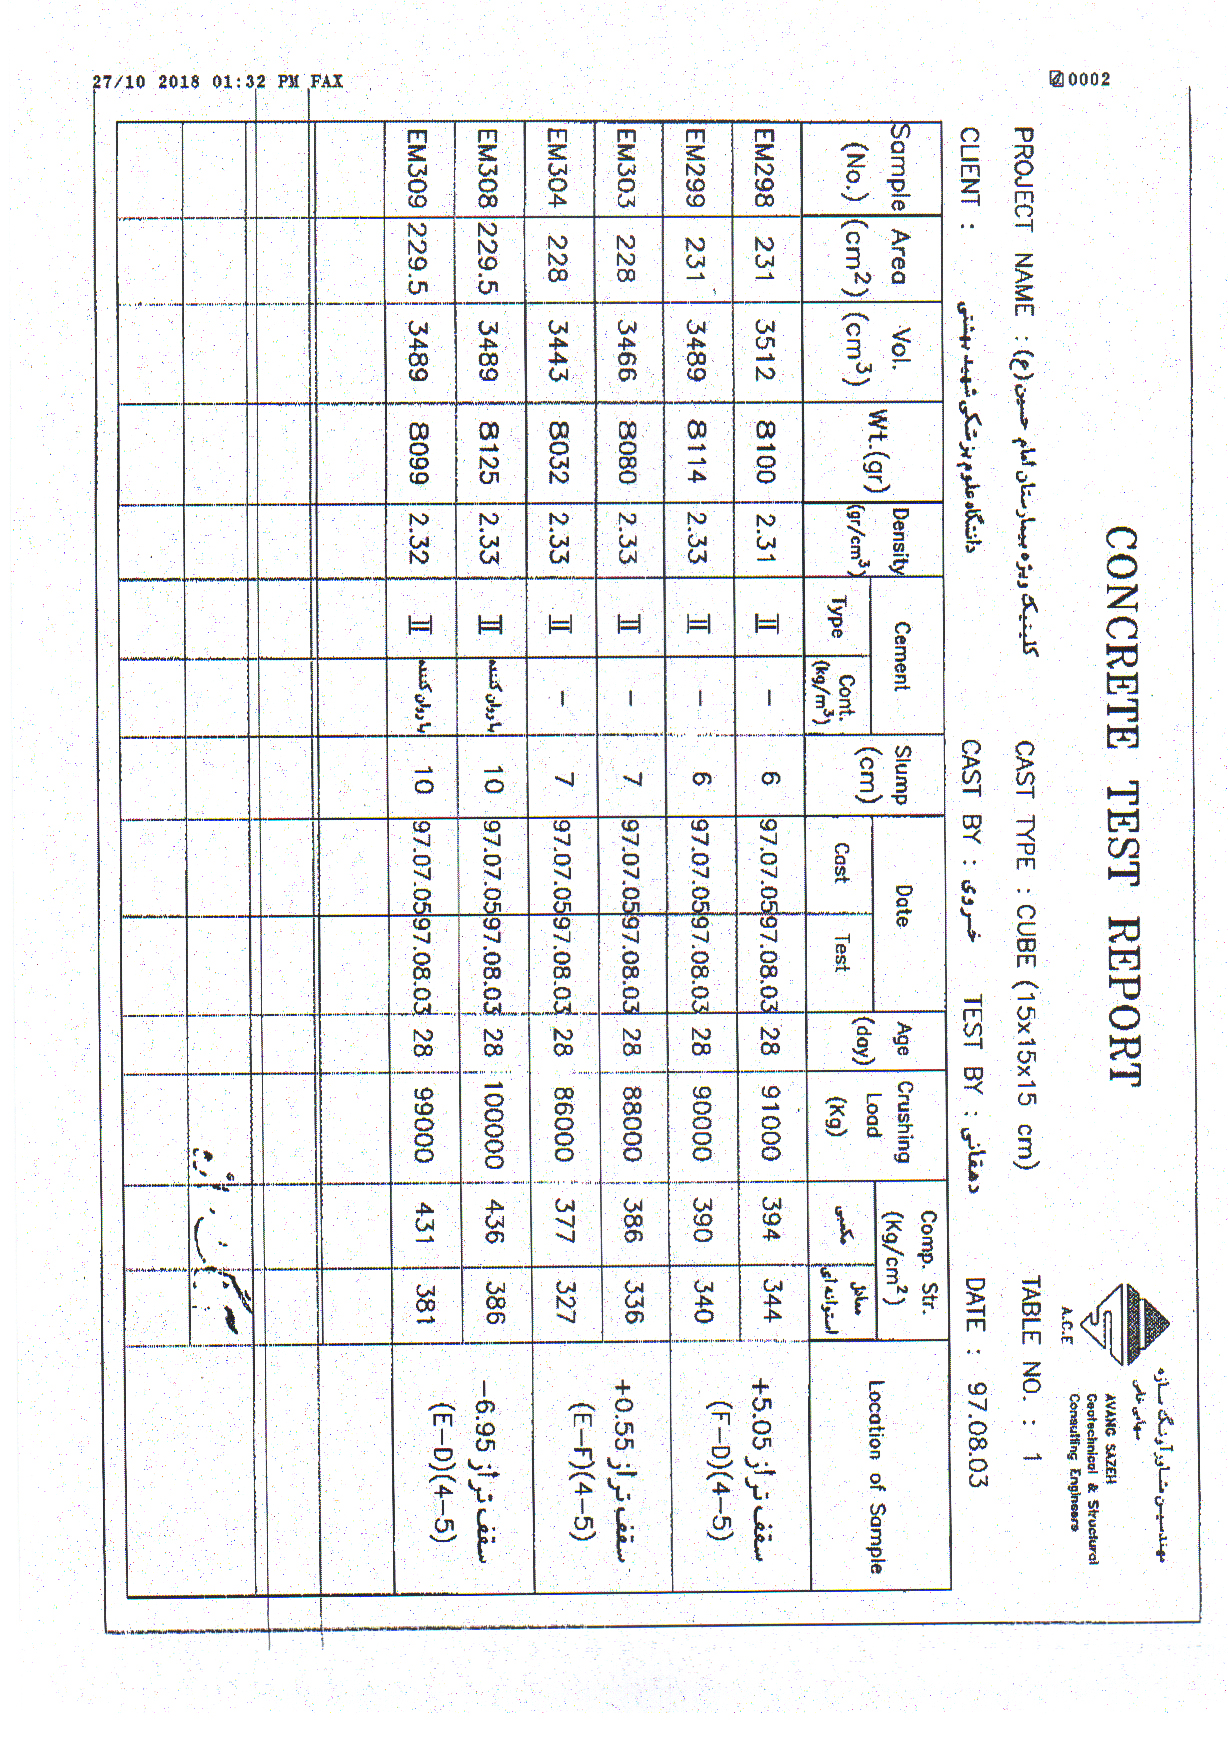 27/10 2018 01:32 PM FAX 0002
CONCRETE TEST REPORT
مهندسین مشاور آونگ سازه
سهامی خاص
AVANG SAZEH
Geotechnical & Structural
Consulting Engineers
A.C.E
PROJECT NAME : کلینیک ویژه بیمارستان امام حسین (ع) CAST TYPE : CUBE (15x15x15 cm) TABLE NO. : 1
CLIENT : دانشگاه علوم پزشکی شهید بهشتی CAST BY : خسروی TEST BY : دهقانی DATE : 97.08.03
Sample (No.) Area (cm2) Vol. (cm3) Wt.(gr) Density (gr/cm3) Cement Type Cont. (kg/m3) Slump (cm) Date Cast Test Age (day) Crushing Load (Kg) Comp. Str. (Kg/cm2) مکعبی معادل استوانه ای Location of Sample
EM298 231 3512 8100 2.31 II - 6 97.07.05 97.08.03 28 91000 394 344 سقف تراز +5.05
EM299 231 3489 8114 2.33 II - 6 97.07.05 97.08.03 28 90000 390 340 (F-D)(4-5)
EM303 228 3466 8080 2.33 II - 7 97.07.05 97.08.03 28 88000 386 336 سقف تراز +0.55
EM304 228 3443 8032 2.33 II - 7 97.07.05 97.08.03 28 86000 377 327 (E-F)(4-5)
EM308 229.5 3489 8125 2.33 II با روان کننده 10 97.07.05 97.08.03 28 100000 436 386 سقف تراز -6.95
EM309 229.5 3489 8099 2.32 II با روان کننده 10 97.07.05 97.08.03 28 99000 431 381 (E-D)(4-5)